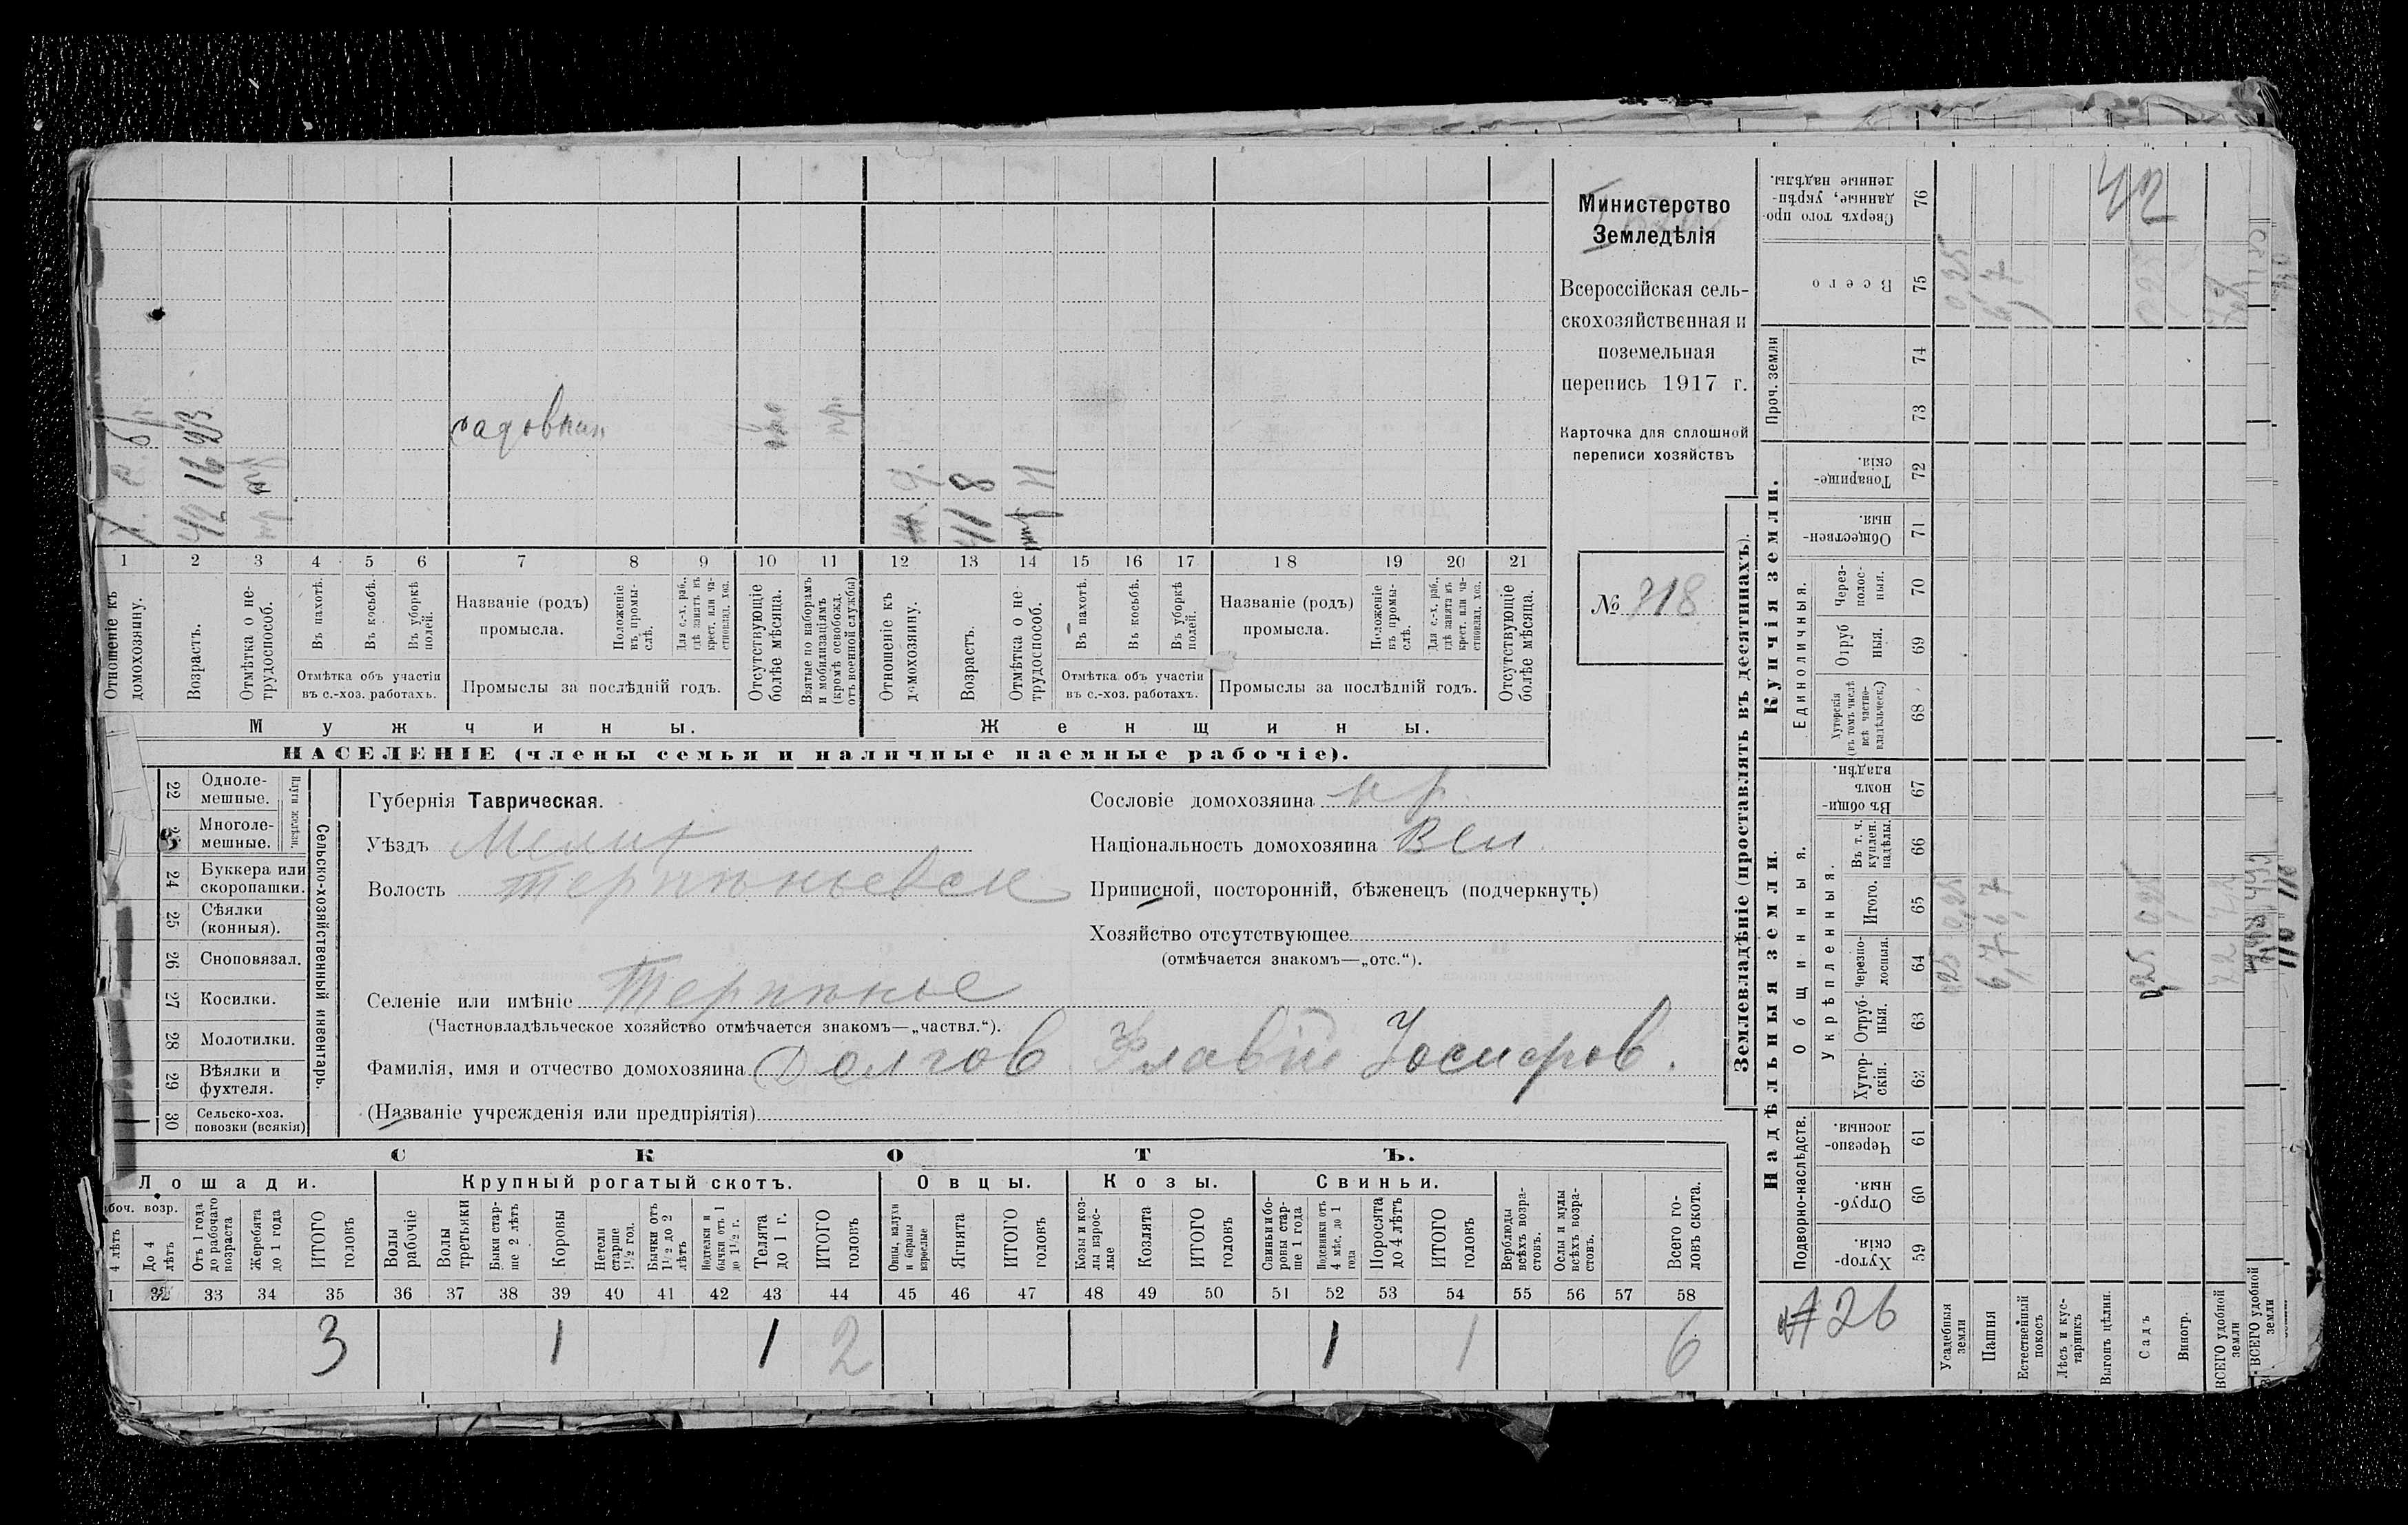 Министерство
Земледѣлія
Всероссійская сель-
скохозяйственная и
поземельная
перепись 1917 г.
Карточка для сплошной
переписи хозяйствъ
№ 218
х. с. бр.
42 16 23
садовник
41 8
1 2 3 4 5 6 7 8 9 10 11 12 13 14 15 16 17 18 19 20 21
Отношеніе къ домохозяину.
Возрастъ.
Отмѣтка о не-трудоспособ.
Въ пахотѣ.
Въ косьбѣ.
Въ уборкѣ полей.
Отмѣтка объ участіи
въ с.-хоз. работахъ.
Названіе (родъ)
промысла.
Положеніе въ промы-слѣ.
Для с.-х. раб., гдѣ занятъ въ крест. или ча-стновлад. хоз.
Промыслы за послѣдній годъ.
Отсутствующіе болѣе мѣсяца.
Взятые по наборамъ и мобилизаціямъ (кромѣ освобожд. отъ военной службы)
Отношеніе къ домохозяину.
Возрастъ.
Отмѣтка о не-трудоспособ.
Въ пахотѣ.
Въ косьбѣ.
Въ уборкѣ полей.
Отмѣтка объ участіи
въ с.-хоз. работахъ.
Названіе (родъ)
промысла.
Положеніе въ промы-слѣ.
Для с.-х. раб., гдѣ занята въ крест. или ча-стновлад. хоз.
Промыслы за послѣдній годъ.
Отсутствующіе болѣе мѣсяца.
Мужчины.
Женщины.
НАСЕЛЕНІЕ (члены семьи и наличные наемные рабочіе).
22 Одноле-мешные.
23 Многоле-мешные.
Плуги желѣзн.
24 Буккера или скоропашки.
25 Сѣялки (конныя).
26 Сноповязал.
27 Косилки.
28 Молотилки.
29 Вѣялки и фухтеля.
30 Сельско-хоз. повозки (всякія)
Сельско-хозяйственный инвентарь.
Губернія Таврическая.
Уѣздъ Мелит
Волость Терпѣньевск
Селеніе или имѣніе Терпѣнье
(Частновладѣльческое хозяйство отмѣчается знакомъ—„частвл.“).
Фамилія, имя и отчество домохозяина Долгов Флавій Іосифов.
(Названіе учрежденія или предпріятія)
Сословіе домохозяина кр.
Національность домохозяина Вел
Приписной, посторонній, бѣженецъ (подчеркнуть)
Хозяйство отсутствующее
(отмѣчается знакомъ—„отс.“).
СКОТЪ.
Лошади.
Крупный рогатый скотъ.
Овцы.
Козы.
Свиньи.
боч. возр.
4 лѣтъ
До 4 лѣтъ
Отъ 1 года до рабочаго возраста
Жеребята до 1 года
ИТОГО головъ
Волы рабочіе
Волы третьяки
Быки стар-ше 2 лѣтъ
Коровы
Нетели старше 1½ год.
Бычки отъ 1½ до 2 лѣтъ
Подтелки и бычки отъ 1 до 1½ г.
Телята до 1 г.
ИТОГО головъ
Овцы, валухи и бараны взрослые
Ягнята
ИТОГО головъ
Козы и коз-лы взрос-лые
Козлята
ИТОГО головъ
Свиньи и бо-ровы стар-ше 1 года
Подсвинки отъ 4 мѣс. до 1 года
Поросята до 4 лѣтъ
ИТОГО головъ
Верблюды всѣхъ возра-стовъ.
Ослы и мулы всѣхъ возра-стовъ.
Всего го-ловъ скота.
1 32 33 34 35 36 37 38 39 40 41 42 43 44 45 46 47 48 49 50 51 52 53 54 55 56 57 58
3 1 1 2 1 1 6
Землевладѣніе (проставлять въ десятинахъ).
Надѣльныя земли.
Купчія земли.
Проч. земли
Подворно-наслѣдств.
Общинныя.
Укрѣпленныя.
Единоличныя.
Хутор-скія. 59
Отруб-ныя. 60
Черезпо-лосныя. 61
Хутор-скія. 62
Отруб-ныя. 63
Черезпо-лосныя. 64
Итого. 65
Въ т. ч. куплен. надѣлы. 66
Въ общин-номъ владѣн. 67
Хуторскія (въ томъ числѣ всѣ частно-владѣльческ.) 68
Отруб ныя. 69
Через-полос-ныя. 70
Обществен-ныя. 71
Товарище-скія. 72
73
74
Всего 75
Сверхъ того про-данные, укрѣп-ленные надѣлы. 76
26
Усадебныя земли
Пашня
Естественный покосъ
Лѣсъ и кус-тарникъ
Выгонъ цѣлин.
Садъ
Виногр.
ВСЕГО удобной земли
ВСЕГО удобной земли
0,25 0,25
6,7 6,7
0,25
6,7
0,25 0,25
7,2 7,2
42